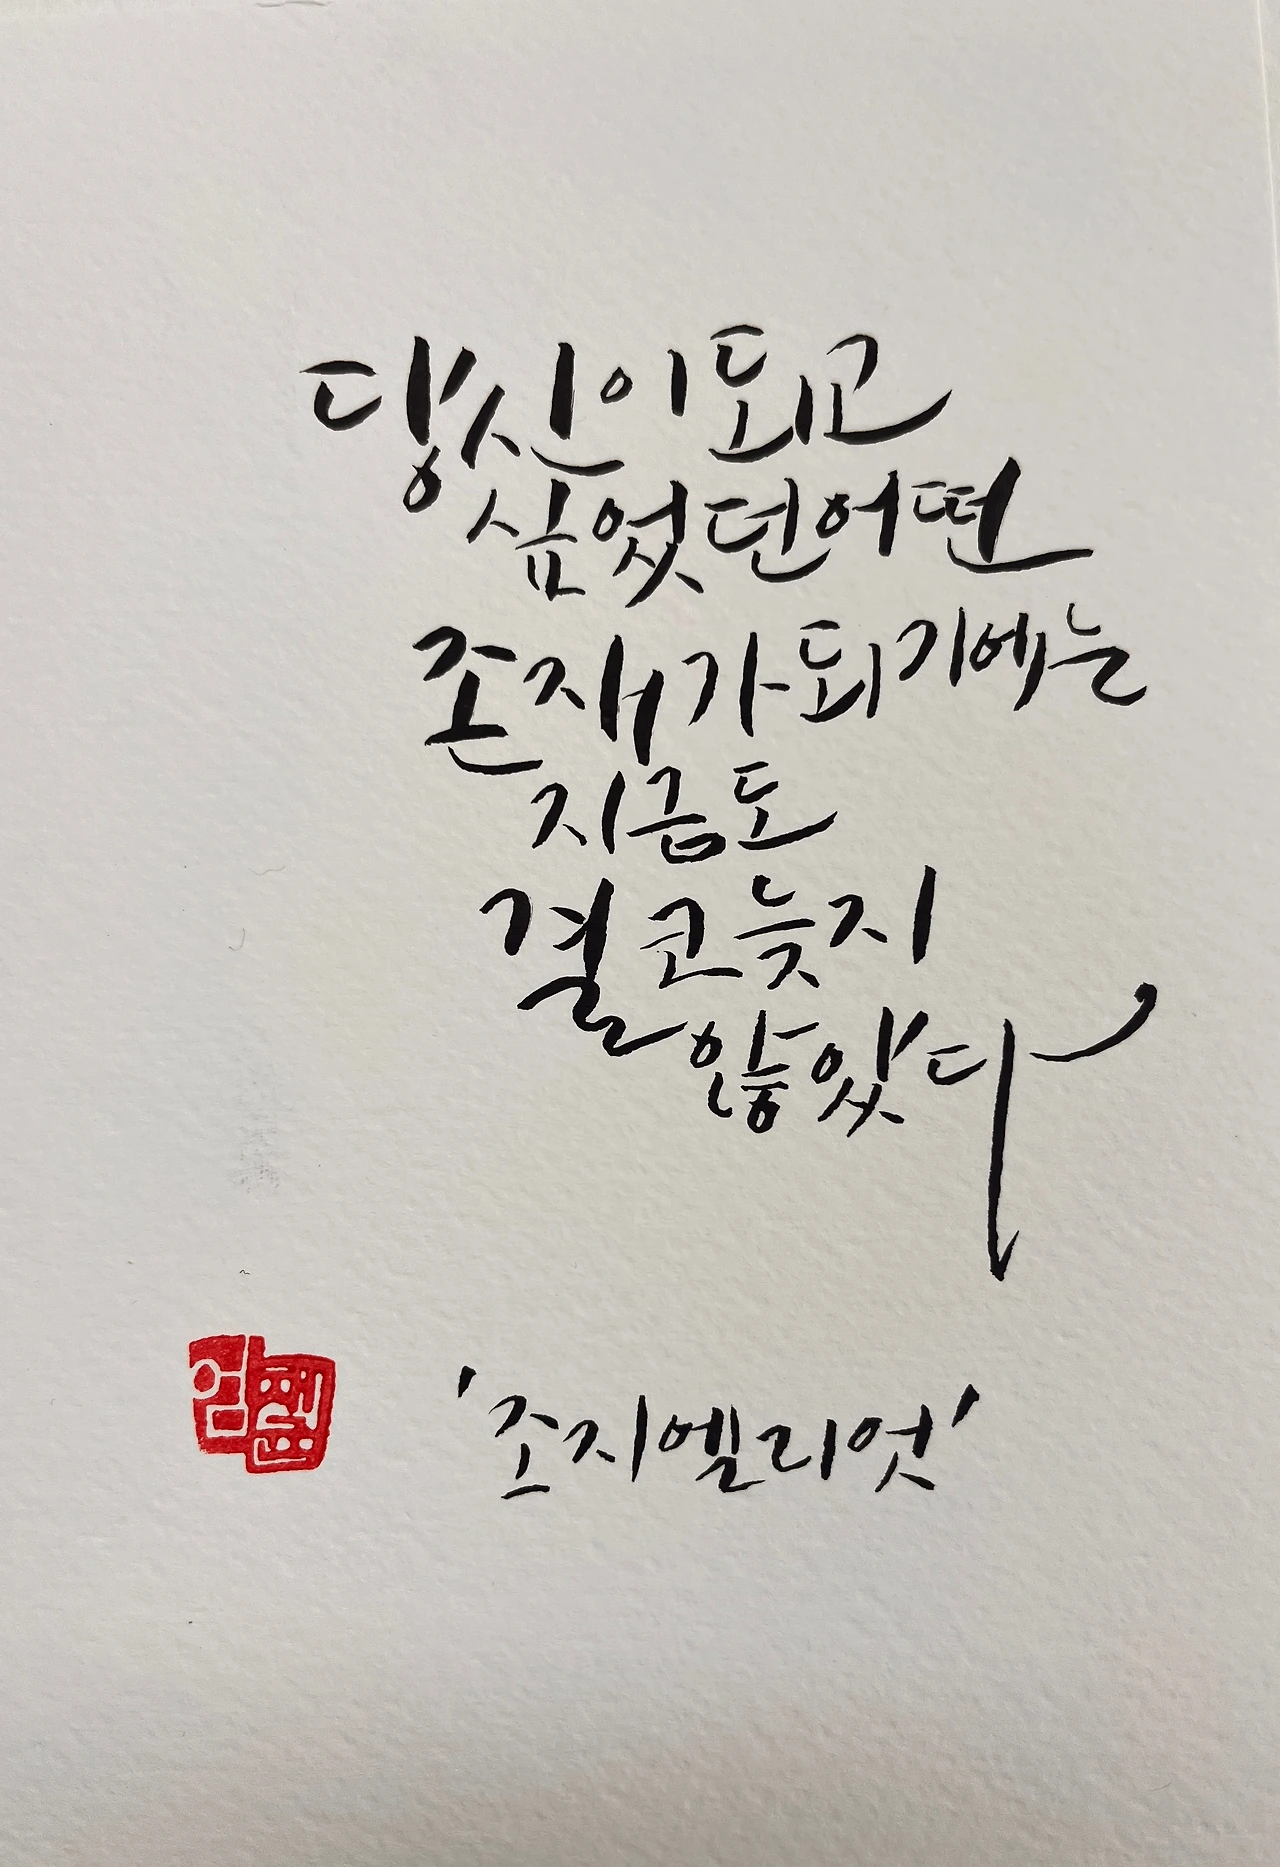 당신이 되고
싶었던 어떤
존재가 되기에는
지금도
결코 늦지
않았다
'조지 엘리엇'
엄